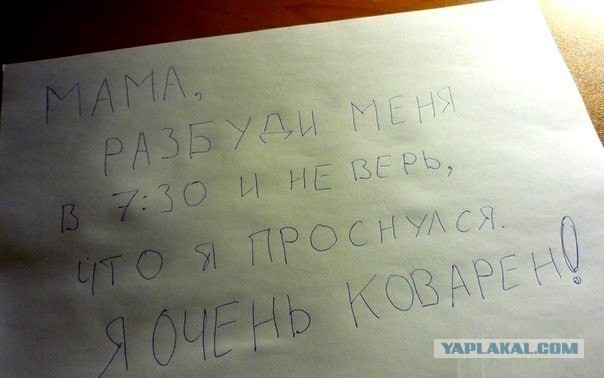 МАМА,
РАЗБУДИ МЕНЯ
В 7:30 И НЕ ВЕРЬ,
ЧТО Я ПРОСНУЛСЯ.
Я ОЧЕНЬ КОВАРЕН!
YAPLAKAL.COM